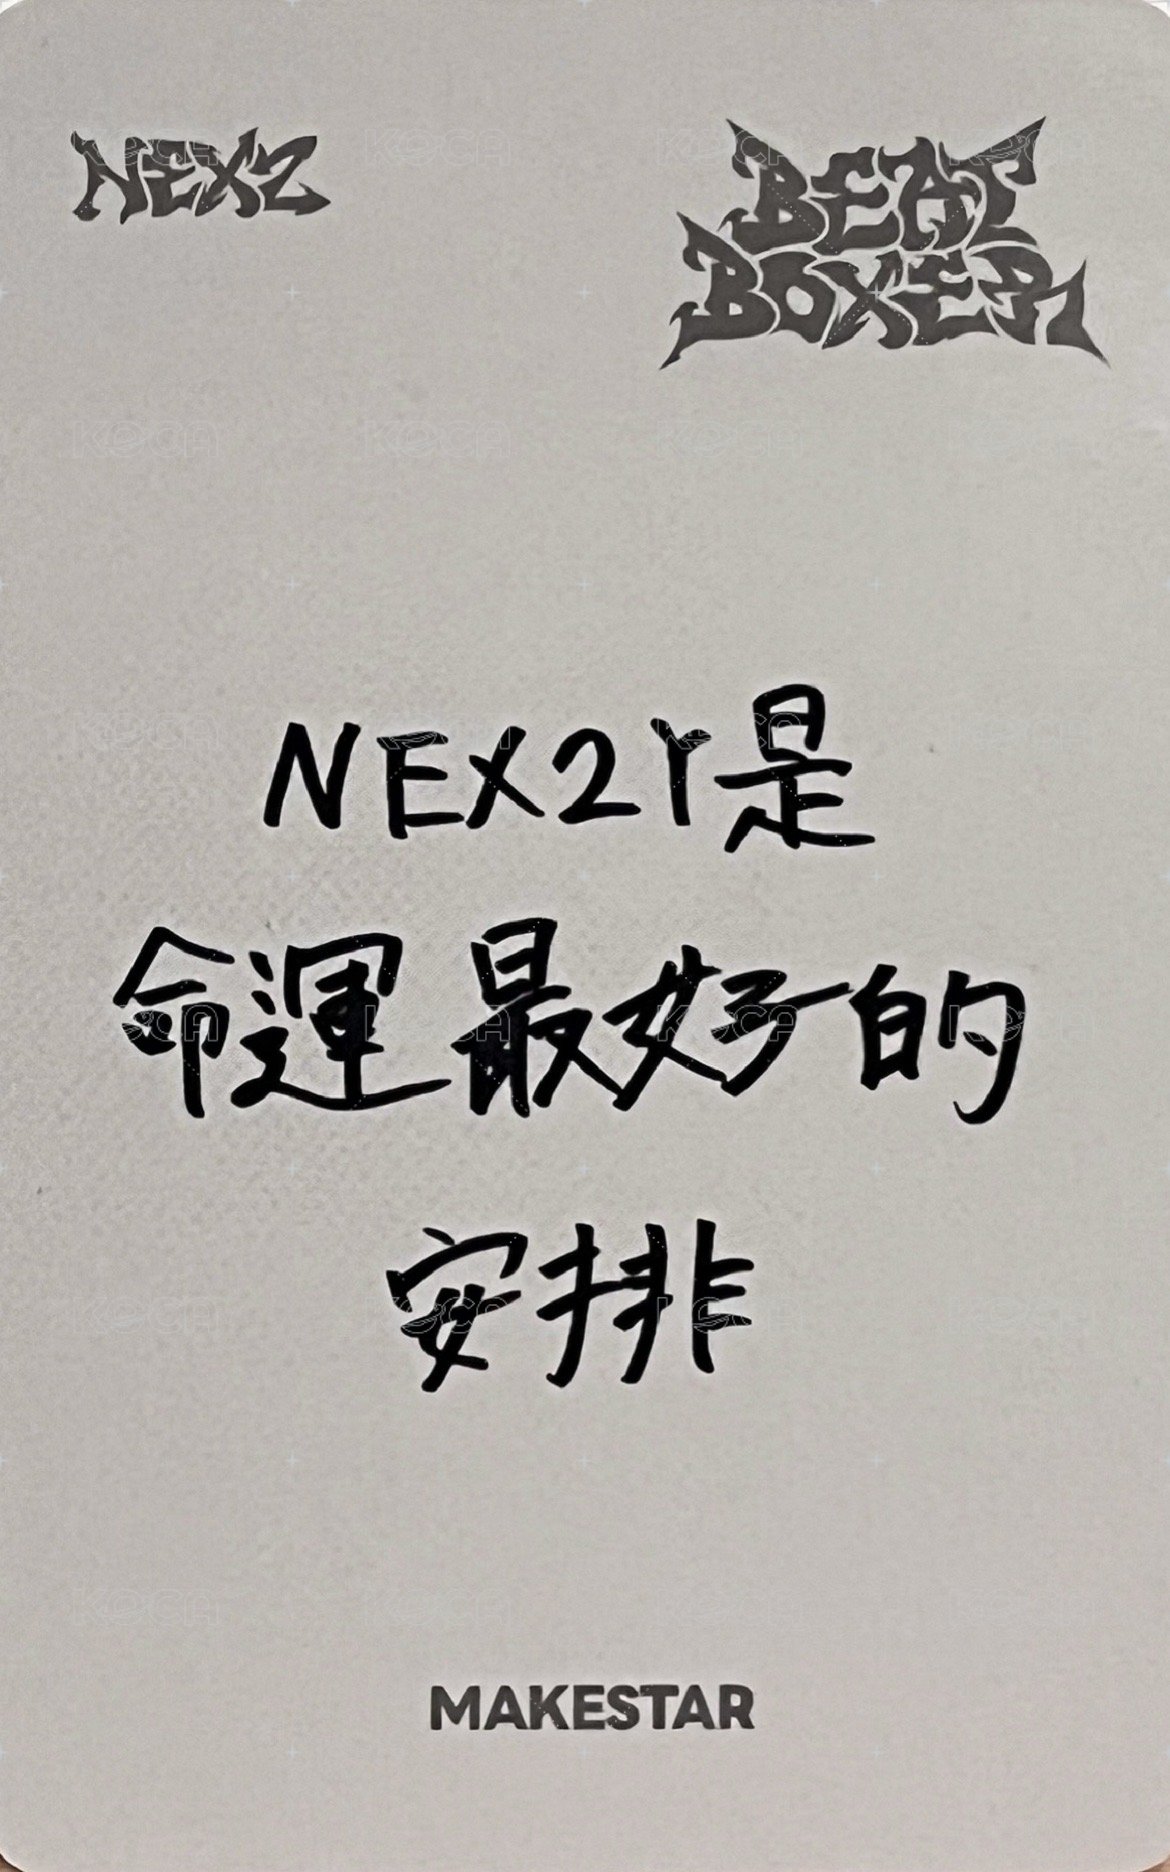 NEXZ
BEAT
BOXER
NEX2Y是
命運最好的
安排
MAKESTAR
KOCA